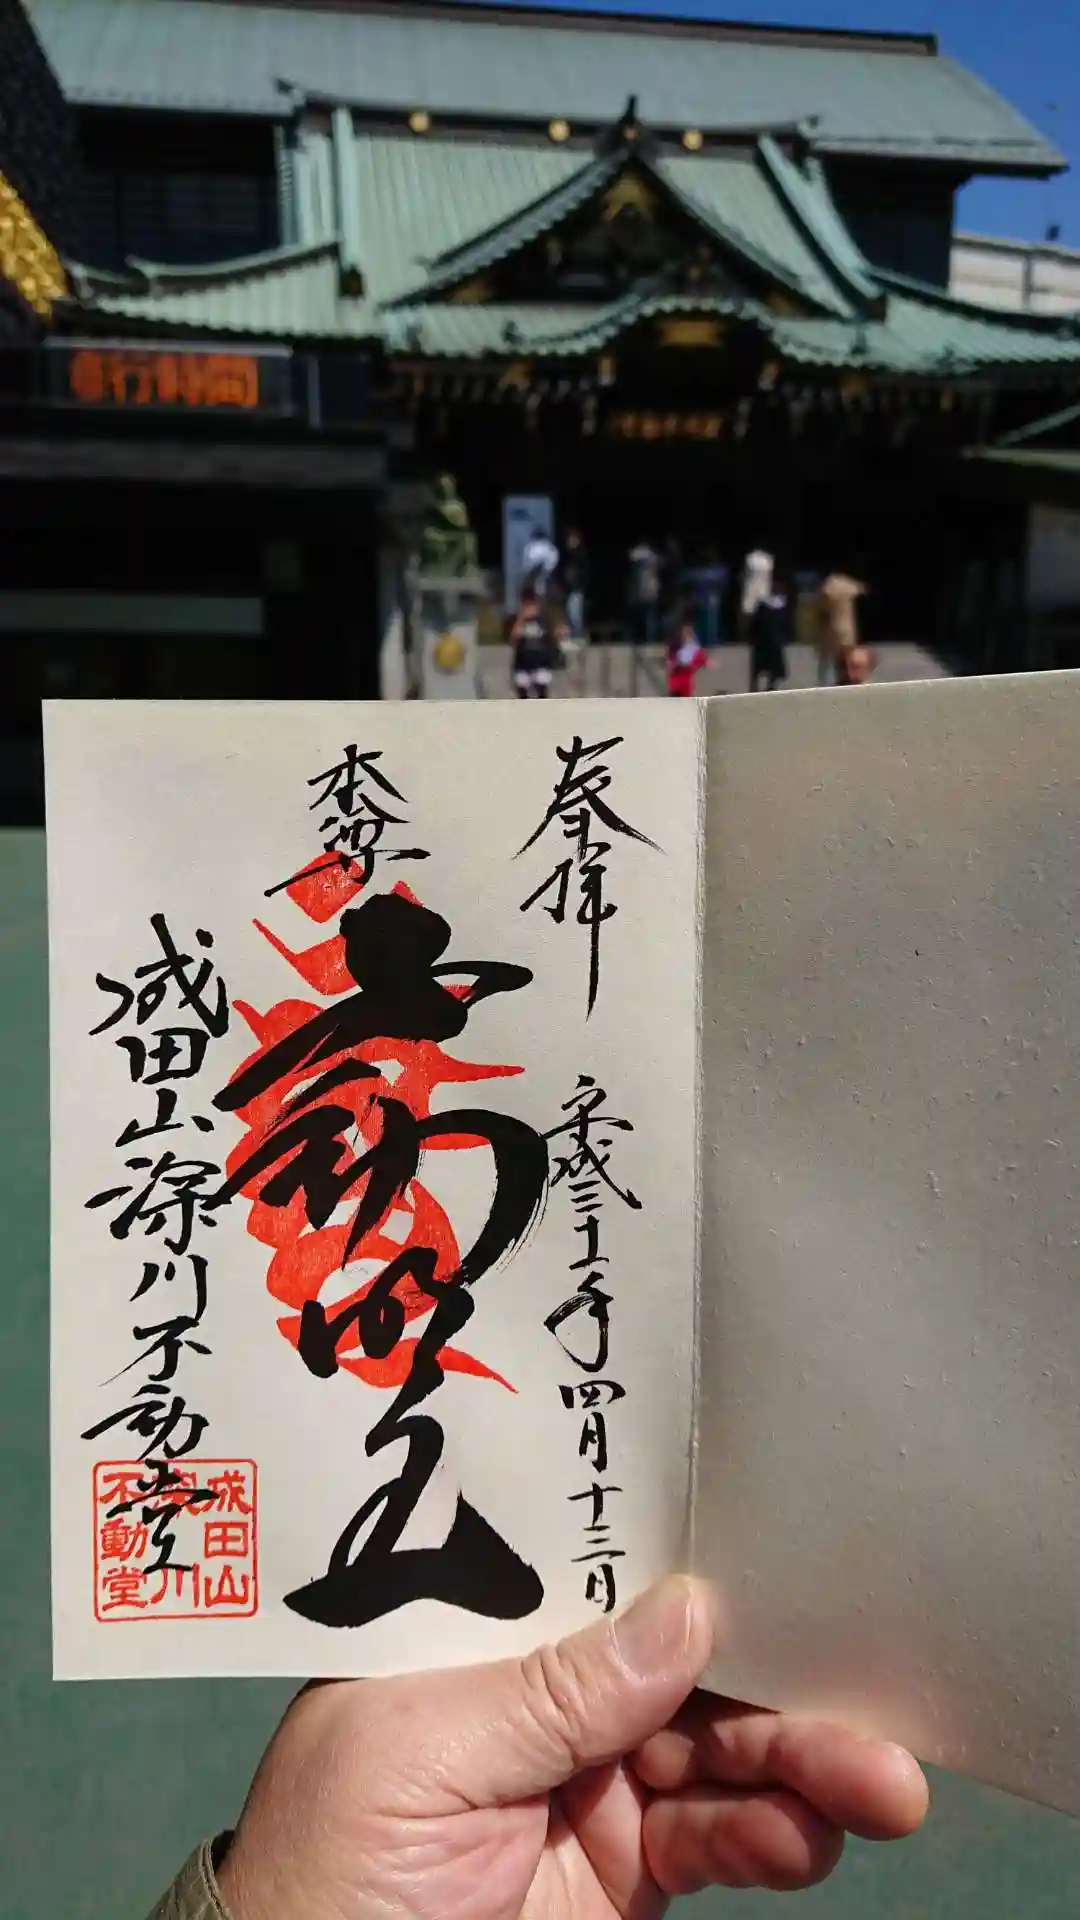 奉拝
平成三十一年四月十三日
本尊
不動明王
成田山深川不動堂
成田山
深川
不動堂
行時間